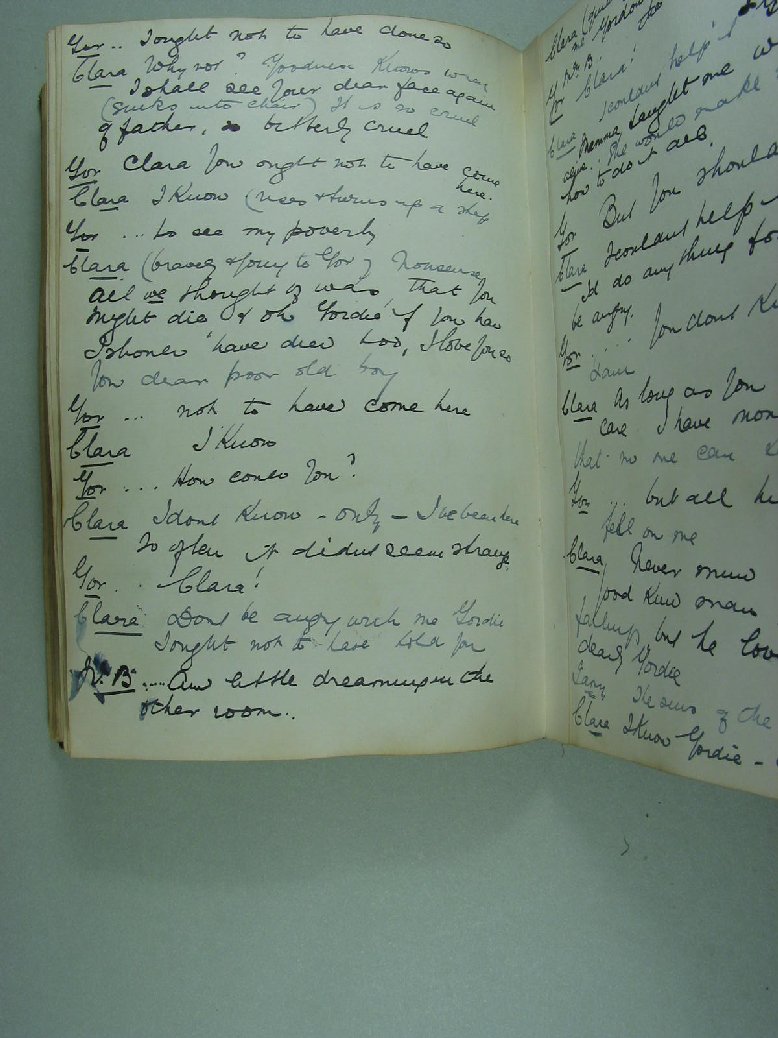 Gor .. I ought not to have done so
Clara Why not? Goodness Knows when
I shall see your dear face again
(sinks into chair) It is so cruel
of father, so bitterly cruel
Gor Clara You ought not to have come
here.
Clara I Know (rises & turns up a step
Gor ... to see my poverty
Clara (bravely & going to Gor) Nonsense
All we thought of was, that You
might die & oh Gordie if You had
I should have died too, I love You so
You dear poor old boy
Gor ... not to have come here
Clara I Know
Gor ... How could You?
Clara I dont Know - only - I've been here
so often it didnt seem strange
Gor .. Clara!
Clara Dont be angry with me Gordie
I ought not to have told You
Mr. B .... And little dreaming in the
other room..
Clara
Gordon
Mr B
Gor Clara!
Clara I couldnt help it
Mamma taught me
alive. She would make
how to do it all.
Gor But You should
Clara I couldnt help
I'd do anything for
be angry.
Gor ..... You dont
I am
Clara As long as You
care I have
that no one can
Gor ... but all
fell on me
Clara, Never mind
good Kind man
failings but he
dearly Gordie
The sins of the
Clara I Know Gordie -